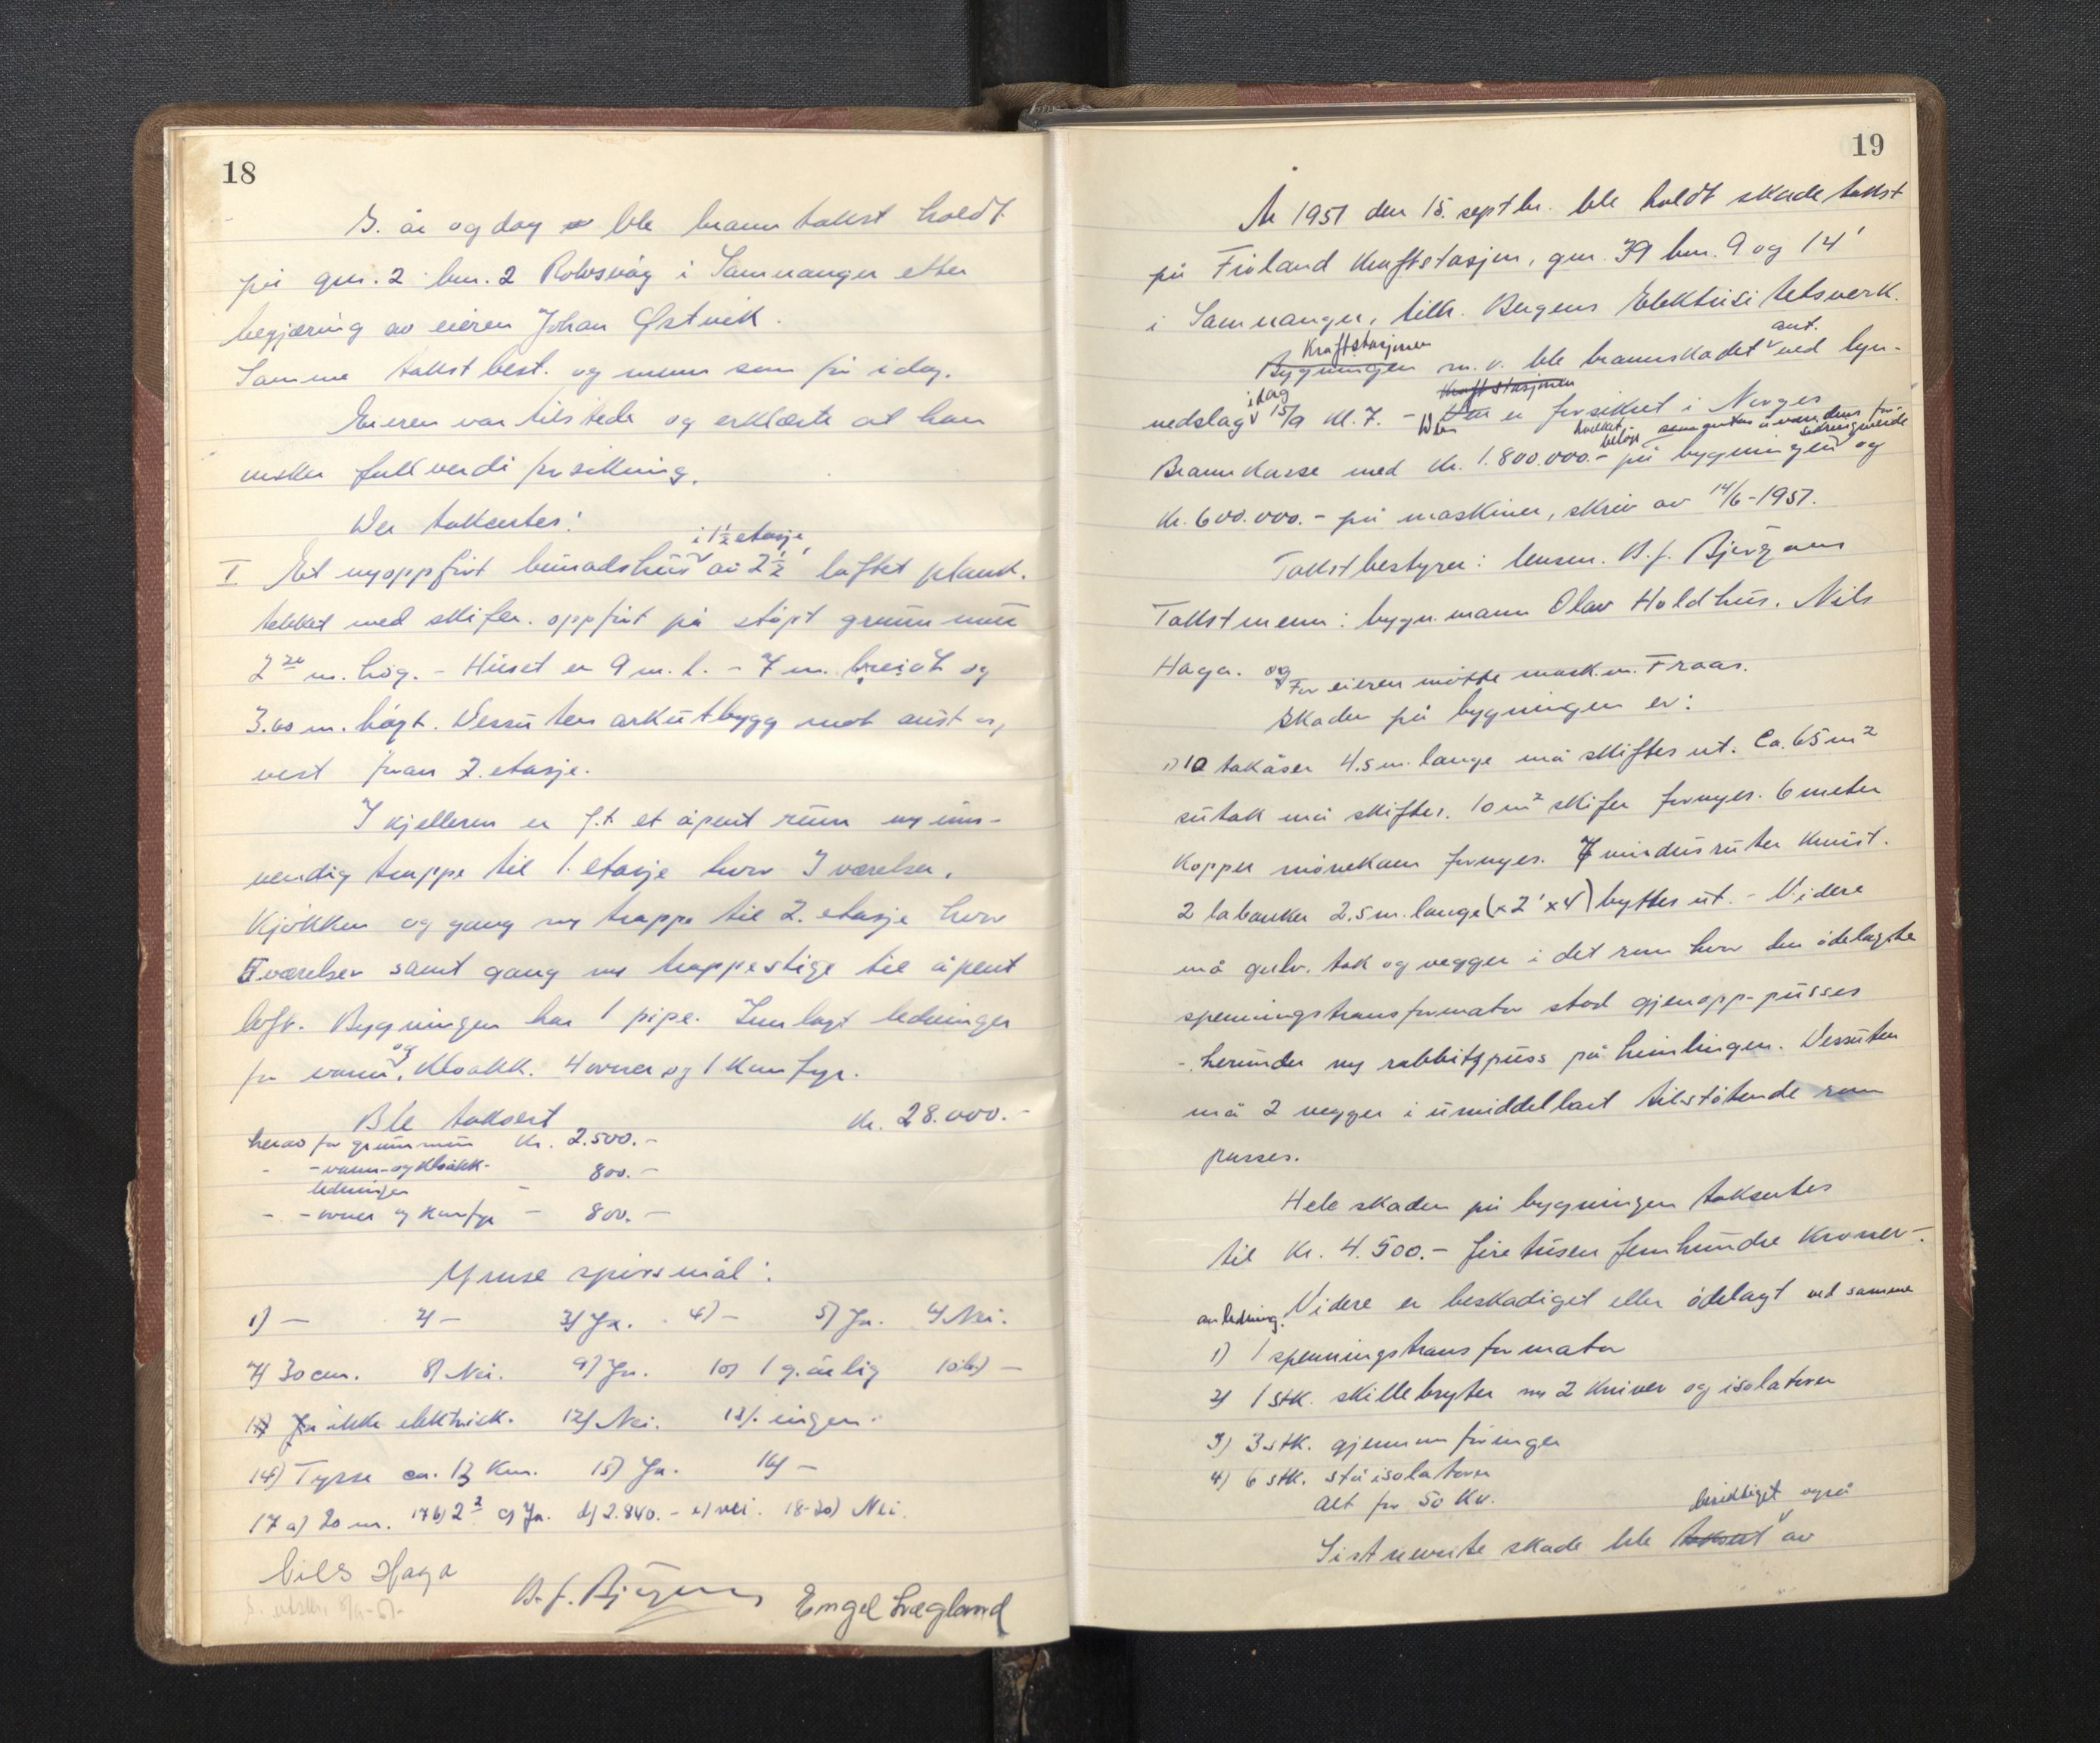 18
S. år og dag ble branntakst holdt
på gnr. 2 bnr. 2 Rolvsvåg i Samnanger etter
begjæring av eieren Johan Østvik.
Samme takst best. og menn som på idag.
Eieren var tilstede og erklærte at han
ønsker fullverdi forsikring.
Der taksertes:
i 1½ etasje
I Et nyoppført beinadshus av 2½" laftet plank.
tekket med skifer. oppført på støpt grunnmur
2 20 m. høg. - Huset er 9 m. l. - 7 m. breidt og
3.60 m. høgt. Dessuten arkutbygg mot aust og
vest fran 2. etasje.
I kjelleren er f.t. et åpent rum m inn-
vendig trappe til 1. etasje hvor 3 værelser,
Kjøkken og gang m trappe til 2. etasje hvor
5 værelser samt gang m trappestige til åpent
loft. Bygningen har 1 pipe. Innlagt ledninger
for vann og Kloakk. 4 ovner og 1 Komfyr.
Ble taksert Kr. 28.000.-
herav for grunnmur Kr. 2.500.-
- - vann- og Kloakk-
ledninger 800.-
- - ovner og Komfyr - 800.-
Ymse spørsmål:
1) - 2) - 3) Ja. 4) - 5) Ja. 6) Nei.
7) 30 cm. 8) Nei. 9) Ja. 10) 1 g. årlig 10b) -
11) Ja ikke elektrisk. 12) Nei. 13). ingen.
14) Tysse ca. 13 Km. 15) Ja. 16) -
17 a) 20 m. 17b) 2 2 c) Ja. d) 2.840.- e) nei. 18-20) Nei.
Nils Haga
B. J. Bjørgum Engel Lægland
19
År 1951 den 15. septbr. ble holdt skadetakst
på Frøland Kraftstasjon, gnr. 39 bnr. 9 og 14
i Samnanger, tilh. Bergens Elektrisitetsverk.
Kraftstasjonen ant.
Bygningen m. v. ble brannskadet ved lyn-
idag Kraftstasjonen
nedslag 15/9 Kl. 7. - Den er forsikret i Norges
hvilket beløp som antas å være dens forsikringsverdi
Brannkasse med Kr. 1.800.000.- på bygningen og
Kr. 600.000.- på maskiner, skriv av 14/6-1951.
Takstbestyrer: lensm. B. J. Bjørgum
Takstmenn: bygn. mann Olav Holdhus. Nils
Haga. og
For eieren møtte mask.m. Fraas.
Skaden på bygningen er:
1) 10 takåser 4.5 m. lange må skiftes ut. Ca. 65 m2
sutak må skiftes. 10 m2 skifer fornyes. 6 meter
Kopper mønekam fornyes. 7 vindusruter knust.
2 labanker 2.5 m. lange (x 2' x 4) byttes ut. - Videre
må gulv. tak og vegger i det rom hvor den ødelagte
spenningstransformator stod gjenopp-pusses
- herunder ny rabbitzpuss på himlingen. Dessuten
må 2 vegger i umiddelbart tilstøtende rom
pusses.
Hele skaden på bygningen takseres
til Kr. 4.500.- fire tusen femhundre kroner-.
Videre er beskadiget eller ødelagt ved samme
anledning.
1) 1 spenningstransformator
2) 1 stk. skillebryter m 2 Kniver og isolatorer
3) 3 stk. gjennomføringer
4) 6 stk. støisolatorer
Alt for 50 Kv.
besiktiget også
Sistnevnte skade ble taksert av